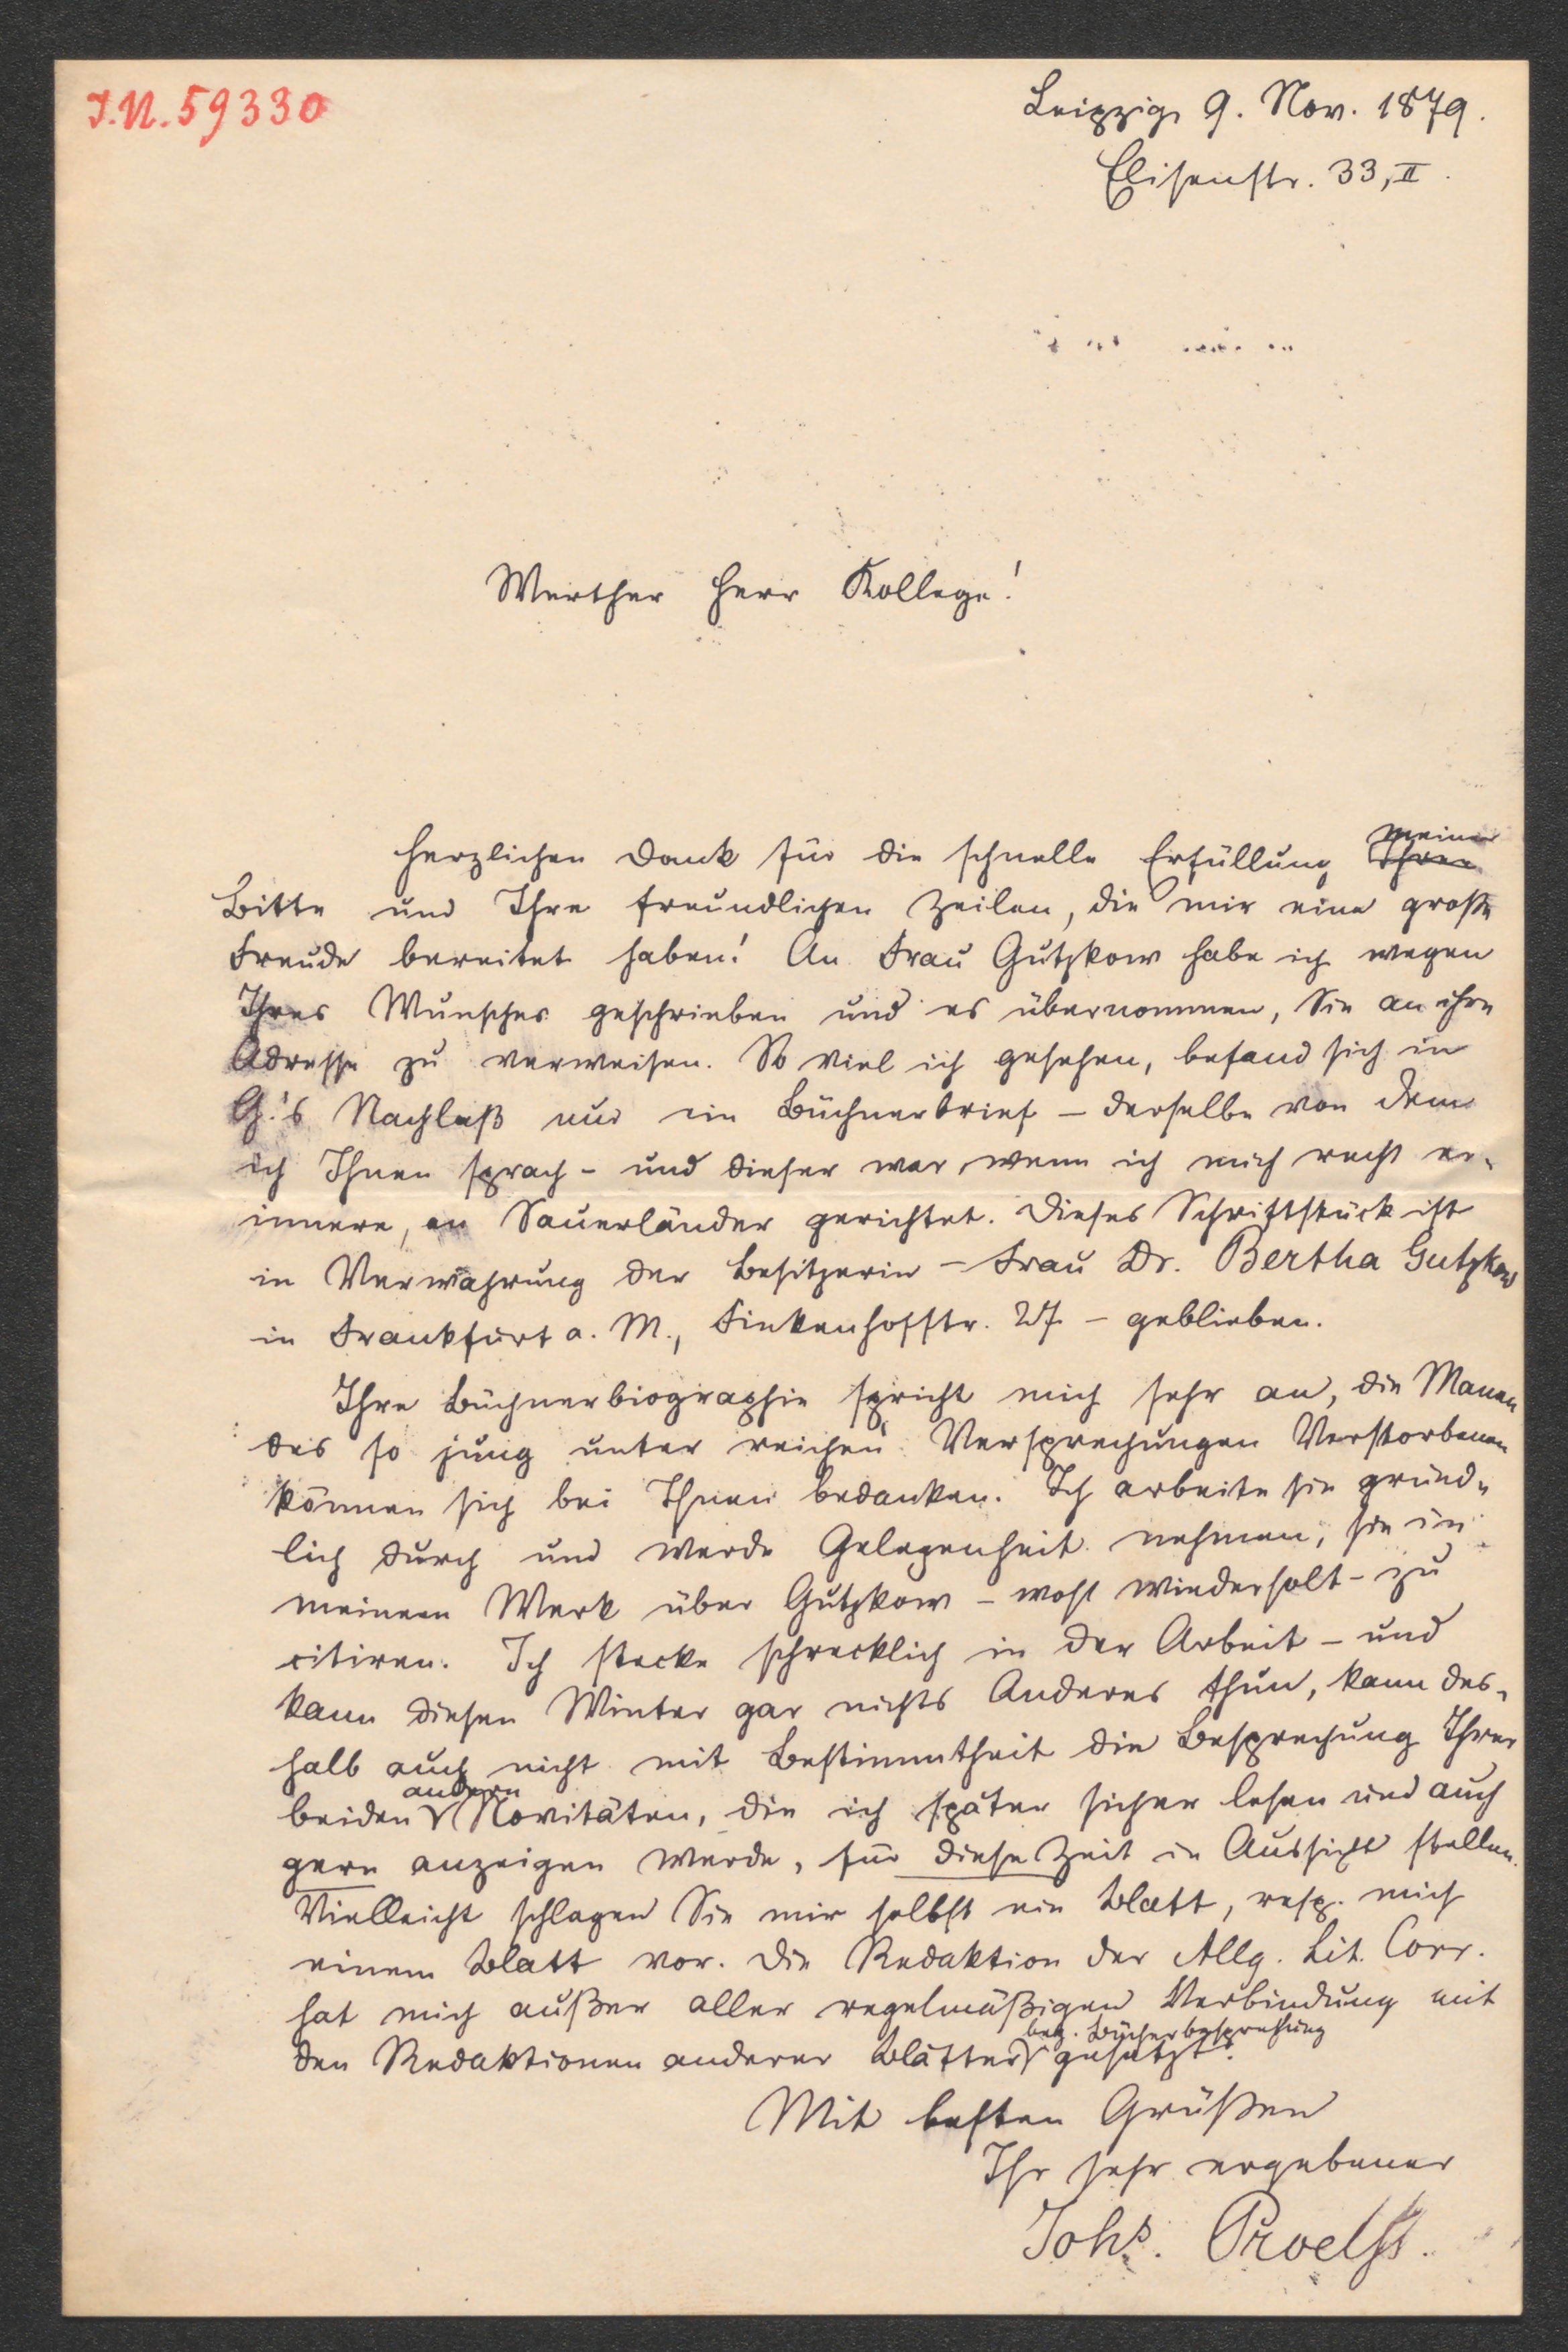 I.N. 59330
Leipzig 9. Nov. 1879.
Elisenstr. 33, II.
Werther Herr Kollege!
Herzlichen Dank für die schnelle Erfüllung meiner
Bitte und Ihre freundlichen Zeilen, die mir eine große
Freude bereitet haben! An Frau Gutzkow habe ich wegen
Ihres Wunsches geschrieben und es übernommen, Sie an ihre
Adresse zu verweisen. So viel ich gesehen, befand sich in
G.'s Nachlaß nur ein Büchnerbrief – derselbe von dem
ich Ihnen sprach – und dieser war, wenn ich mich recht er-
innere, an Sauerländer gerichtet. Dieses Schriftstück ist
in Verwahrung der Besitzerin – Frau Dr. Bertha Gutzkow
in Frankfurt a. M., Finkenhofstr. 27. – geblieben.
Ihre Büchnerbiographie spricht mich sehr an, die Manen
des so jung unter reichen Versprechungen Verstorbenen
können sich bei Ihnen bedanken. Ich arbeite sie gründ-
lich durch und werde Gelegenheit nehmen, sie in
meinem Werk über Gutzkow – wohl wiederholt – zu
citiren. Ich stecke schrecklich in der Arbeit – und
kann diesen Winter gar nichts Anderes thun, kann des-
halb auch nicht mit Bestimmtheit die Besprechung Ihrer
beiden andern Novitäten, die ich später sicher lesen und auch
gern anzeigen werde, für diese Zeit in Aussicht stellen.
Vielleicht schlagen Sie mir selbst ein Blatt, resp. mich
einem Blatt vor. Die Redaktion der Allg. Lit. Corr.
hat mich außer aller regelmäßigen Verbindung mit
den Redaktionen anderer Blätter bez. Bücherbesprechung gesetzt.
Mit besten Grüßen
Ihr sehr ergebener
Johs. Proelß.